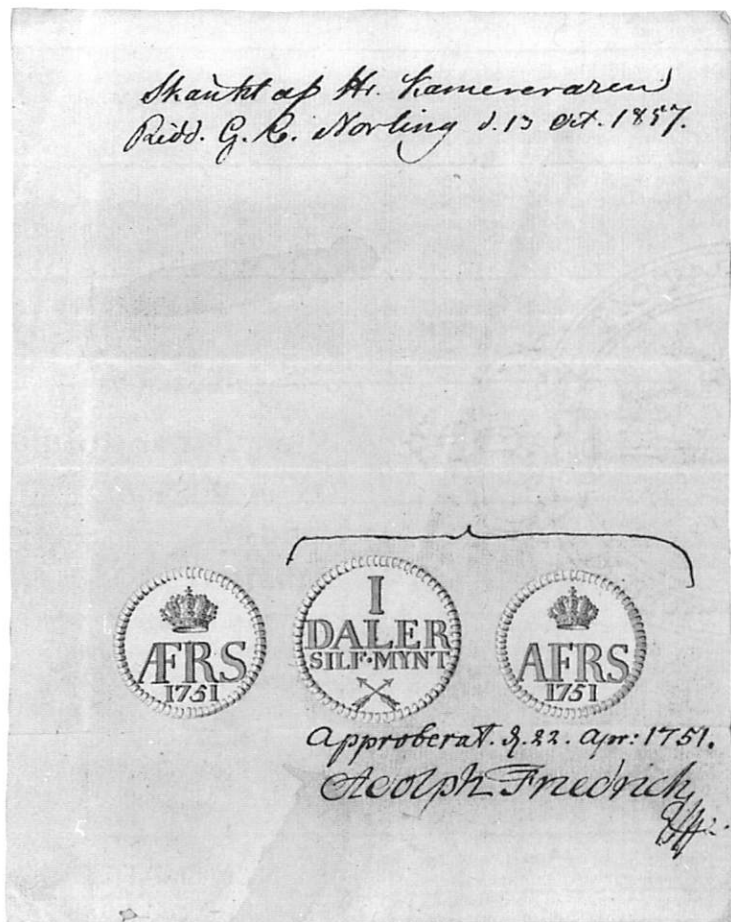 Skänkt af Hr. Kamereraren
Ridd. G. C. Norling d. 13 Oct. 1857.
ÆFRS
1751
I
DALER
SILF·MYNT
AFRS
1751
Approberat. d. 22. Apr: 1751.
Adolph Friedrich